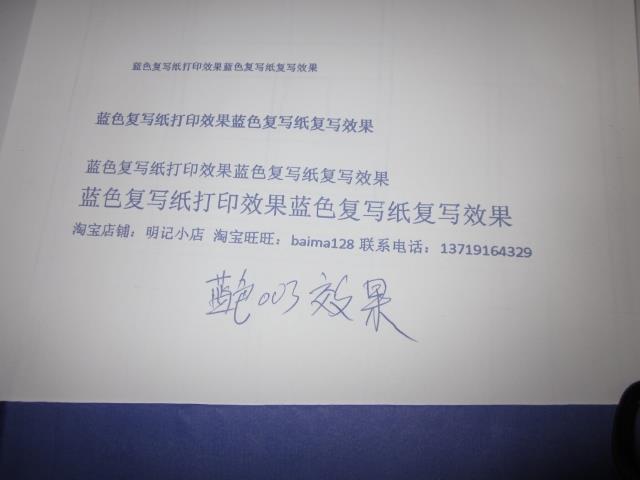 蓝色复写纸打印效果蓝色复写纸复写效果
蓝色复写纸打印效果蓝色复写纸复写效果
蓝色复写纸打印效果蓝色复写纸复写效果
蓝色复写纸打印效果蓝色复写纸复写效果
淘宝店铺：明记小店 淘宝旺旺：baima128 联系电话：13719164329
蓝色003效果